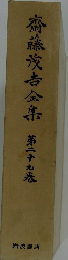 齋藤茂吉全集
第二十九巻
岩波書店